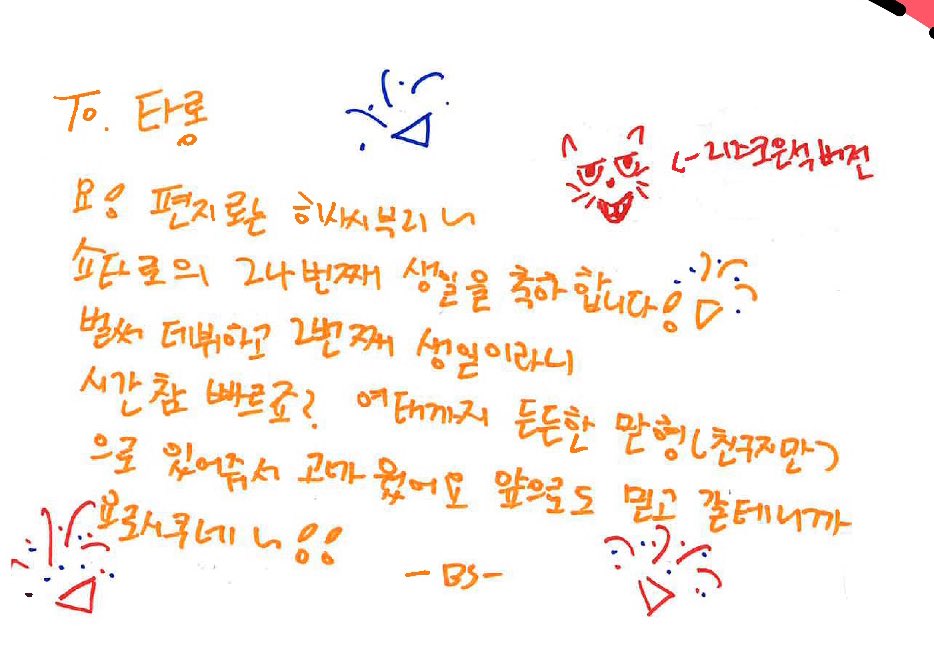 To. 타롱
←리즈코은석버전
요! 편지로는 히사시부리~
쇼타로의 24번째 생일을 축하합니다!
벌써 데뷔하고 2번째 생일이라니
시간 참 빠르죠? 여태까지 든든한 맏형(친구지만)
으로 있어줘서 고마웠어요 앞으로도 믿고 갈테니까
요로시쿠네~!!
-BS-